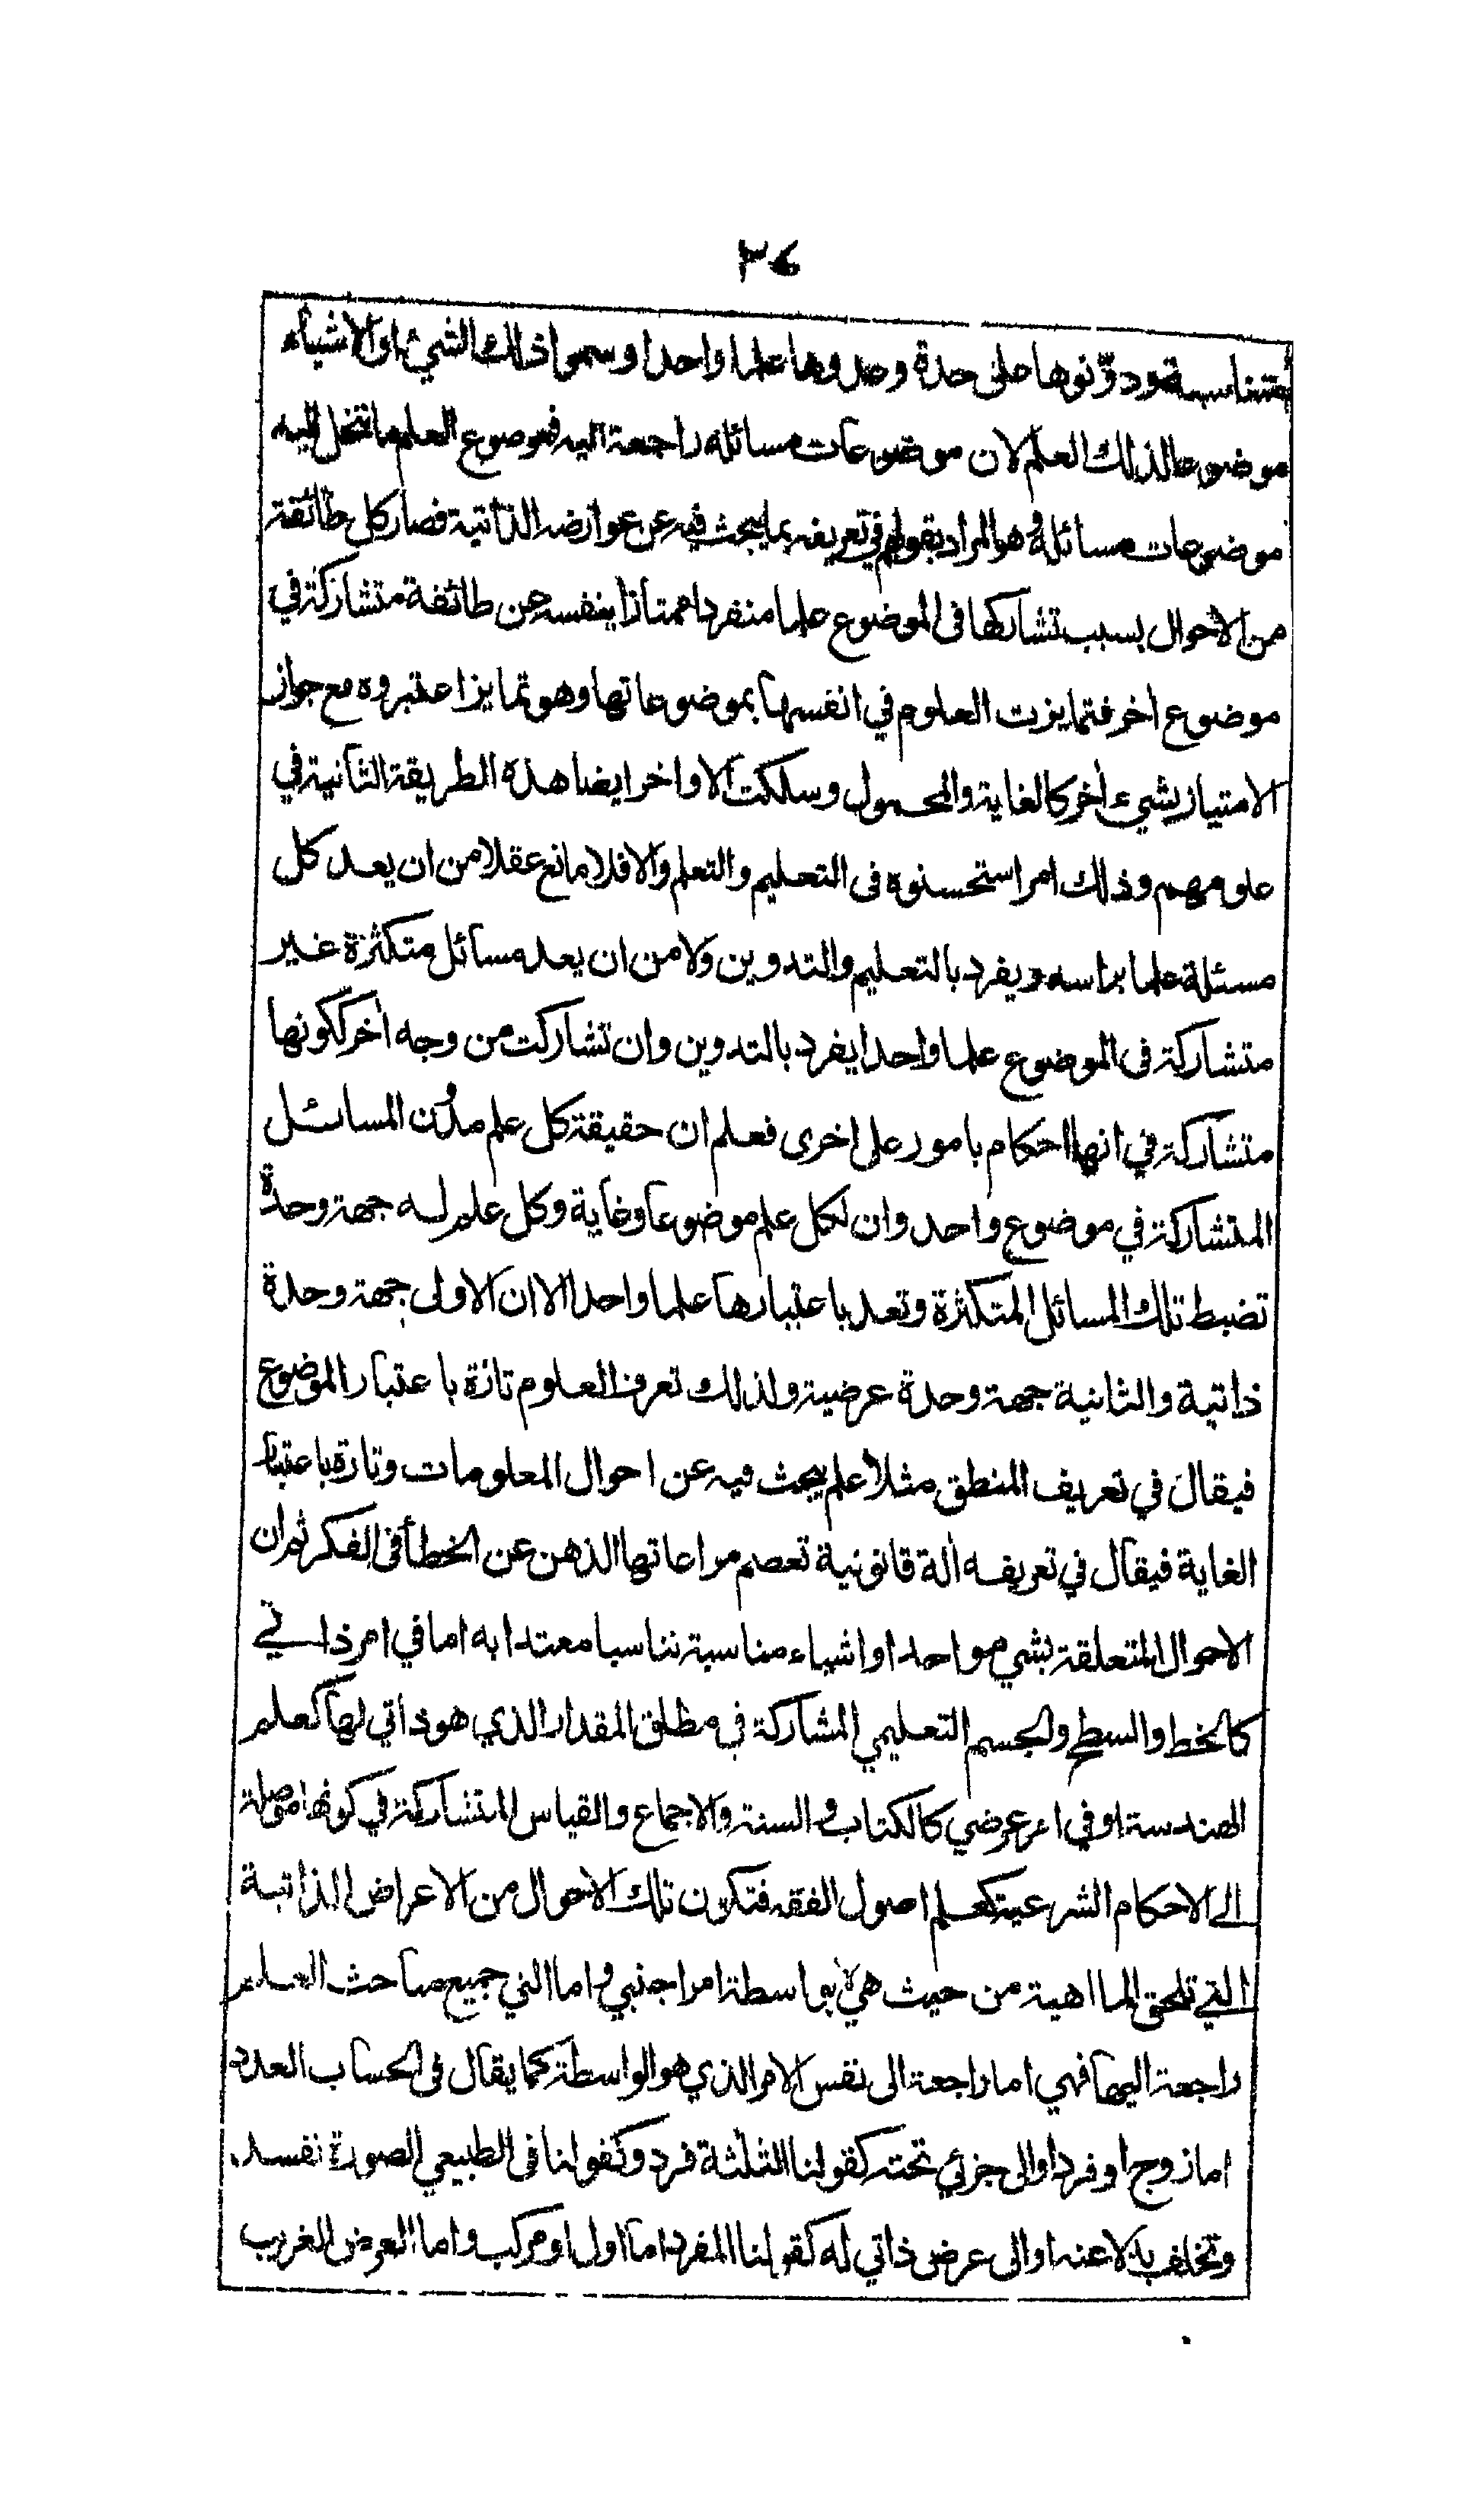 ٣٤
متناسبة ودوّنوها على حدة وعدوها علما واحدا وسموا ذلك الشيء او الاشياء
موضوعا لذلك العلم لان موضوعات مسائله راجعة اليه فموضوع العلم ما تنحل اليه
موضوعات مسائله وهو المراد بقولهم في تعريفه بما يبحث فيه عن عوارضه الذاتية فصار كل طائفة
من الاحوال بسبب تشاركها فى الموضوع علما منفردا ممتازا بنفسه عن طائفة متشاركة في
موضوع اخر فتمايزت العلوم في انفسها بموضوعاتها وهو تمايز اعتبروه مع جواز
الامتياز بشيء أخر كالغاية والمحمول وسلكت الاواخر ايضا هذه الطريقة الثانية في
علومهم وذلك امر استحسنوه فى التعليم والتعلم والا فلا مانع عقلا من ان يعد كل
مسئلة علما براسه ويفرد بالتعليم والتدوين ولا من ان يعد مسائل متكثرة غير
متشاركة فى الموضوع علما واحدا يفرد بالتدوين وان تشاركت من وجه أخر ككونها
متشاركة في انها احكام بامور على اخرى فعلم ان حقيقة كل علم مدون المسائل
المتشاركة في موضوع واحد وان لكل علم موضوعا وغاية وكل علم له جهة وحدة
تضبط تلك المسائل المتكثرة وتعد باعتبارها علما واحدا الا ان الاولى جهة وحدة
ذاتية والثانية جهة وحدة عرضية ولذلك تعرف العلوم تارة باعتبار الموضوع
فيقال في تعريف المنطق مثلا علم يبحث فيه عن احوال المعلومات وتارة باعتبار
الغاية فيقال في تعريفه ألة قانونية تعصم مراعاتها الذهن عن الخطأ فى الفكر ثم ان
الاحوال المتعلقة بشيء واحد او اشياء مناسبة تناسبا معتدا به اما في امر ذاتي
كالخط والسطح والجسم التعليمي المشاركة في مطلق المقدار الذي هو ذاتي لها كعلم
الهندسة او في امر عرضي كالكتاب والسنة والاجماع والقياس المتشاركة في كونها موصلة
الى الاحكام الشرعية كعلم اصول الفقه فتكون تلك الاحوال من الاعراض الذاتية
التي تلحق الماهية من حيث هي لا بواسطة امر اجنبي واما التي جميع مباحث العلم
راجعة اليها فهي اما راجعة الى نفس الامر الذي هو الواسطة كما يقال فى الحساب العدد
اما زوج او فرد او الى جزئي تحته كقولنا الثلثة فرد وكقولنا فى الطبيعي الصورة تفسد
وتخلف بدلا عنه او الى عرض ذاتي له كقولنا المفرد اما اول او مركب واما العرض الغريب